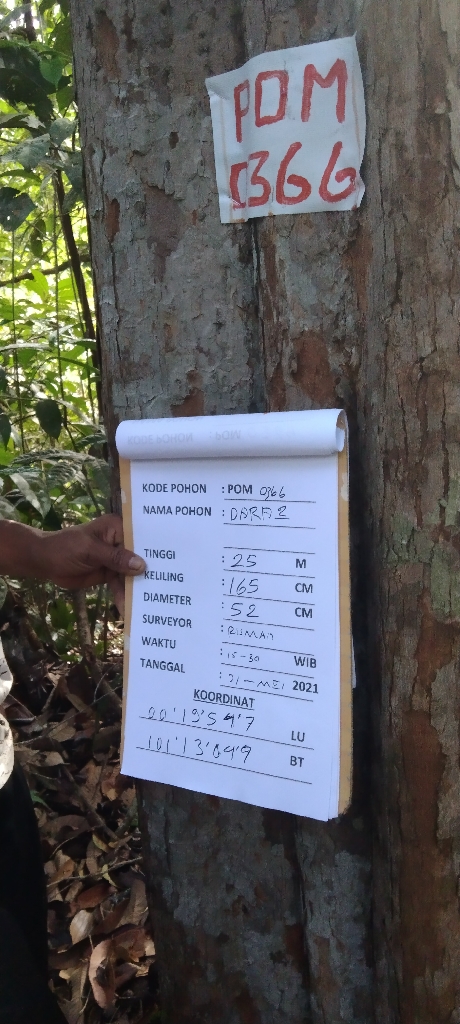 POM
0366
KODE POHON : POM 0366
NAMA POHON : DARAR
TINGGI : 25 M
KELILING : 165 CM
DIAMETER : 52 CM
SURVEYOR :
WAKTU : 15-30 WIB
TANGGAL : 21-MEI 2021
KOORDINAT
00'19'59'7 LU
101'13'099 BT